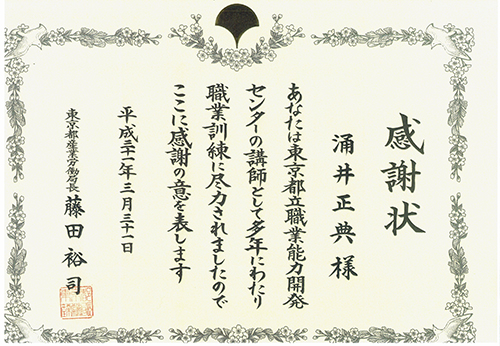 感謝状
涌井正典様
あなたは東京都立職業能力開発
センターの講師として多年にわたり
職業訓練に尽力されましたので
ここに感謝の意を表します
平成三十一年三月三十一日
東京都産業労働局長 藤田裕司